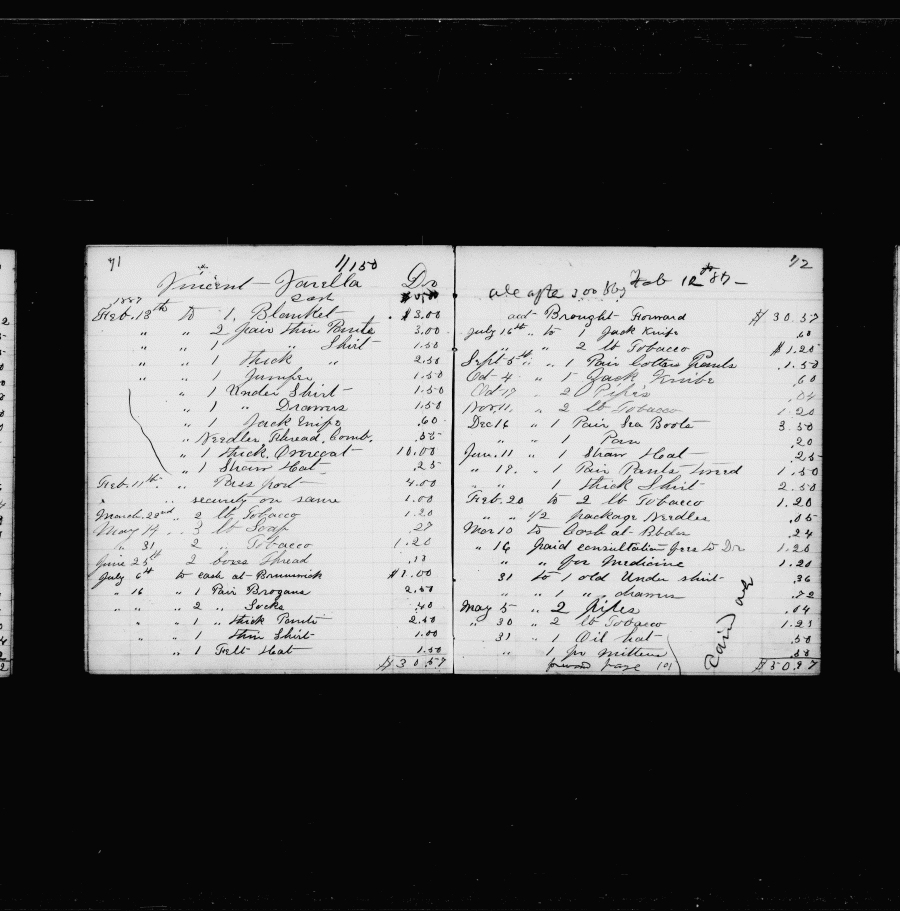 71
1/150
Vincent Varella Dr
1887
Feb. 18th to 1, Blanket $3.00
" " 2 pair thin Pants 3.00
" " 1 " Shirt 1.50
" " 1 thick " 2.50
" " 1 Jumper 1.50
" 1 Under Shirt 1.50
" 1 " Drawers 1.50
" 1 Jack Knife .60
" Needles, Thread, Comb.
" 1 thick Overcoat 10.00
" 1 Straw Hat .25
Feb. 11th. " Pass port 4.00
" " security on same 1.00
March 22nd " 2 lb Tobacco 1.20
May 14 " 3 lb Soap .27
" 31 2 " Tobacco 1.20
June 25th 2 boxes Thread
July 6th to cash at Brunswick $1.00
" 16 " 1 Pair Brogans 2.50
" " 2 " Socks .40
" " 1 " thick Pants 2.50
" " 1 thin Shirt 1.00
" 1 Felt Hat 1.50
$30.57
72
Feb 12th 87
act Brought Forward $30.57
July 16th " to 1 Jack Knife .60
" " 2 lb Tobacco $1.20
Sept 5th " " 1 Pair Cotton Pants 1.50
Oct 4 " 1 Jack Knife .60
Oct 17 " 2 Pipes .04
Nov. 11. " 2 lb Tobacco 1.20
Dec 16 " 1 Pair Sea Boots 3.50
" " 1 Pan .20
Jan. 11 " 1 Straw Hat .25
" 18. " 1 Pair Pants lined 1.50
" " 1 thick Shirt 2.50
Feb. 20 to 2 lb Tobacco 1.20
" " 1/2 package Needles .05
Mar 10 to Cash at .24
" 16 paid consultation fees to Dr 1.20
" " for Medicine 1.20
31 to 1 old Under shirt .36
" " 1 " drawers .72
May 5 " 2 pipes .04
" 30 " 2 lb Tobacco
" 31 " 1 Oil hat .50
" 1 pr mittens .50
forward page 101 $50.97
Paid